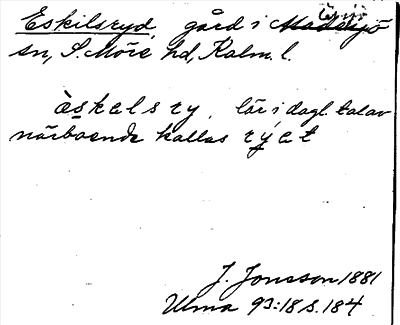 Eskilsryd, gård i Madesjö
sn, S. Möre hd, Kalm. l.
èskelsry, lär i dagl. tal av
närboende kallas rýet
J. Jonsson 1881
Ulma 93:18 s. 184